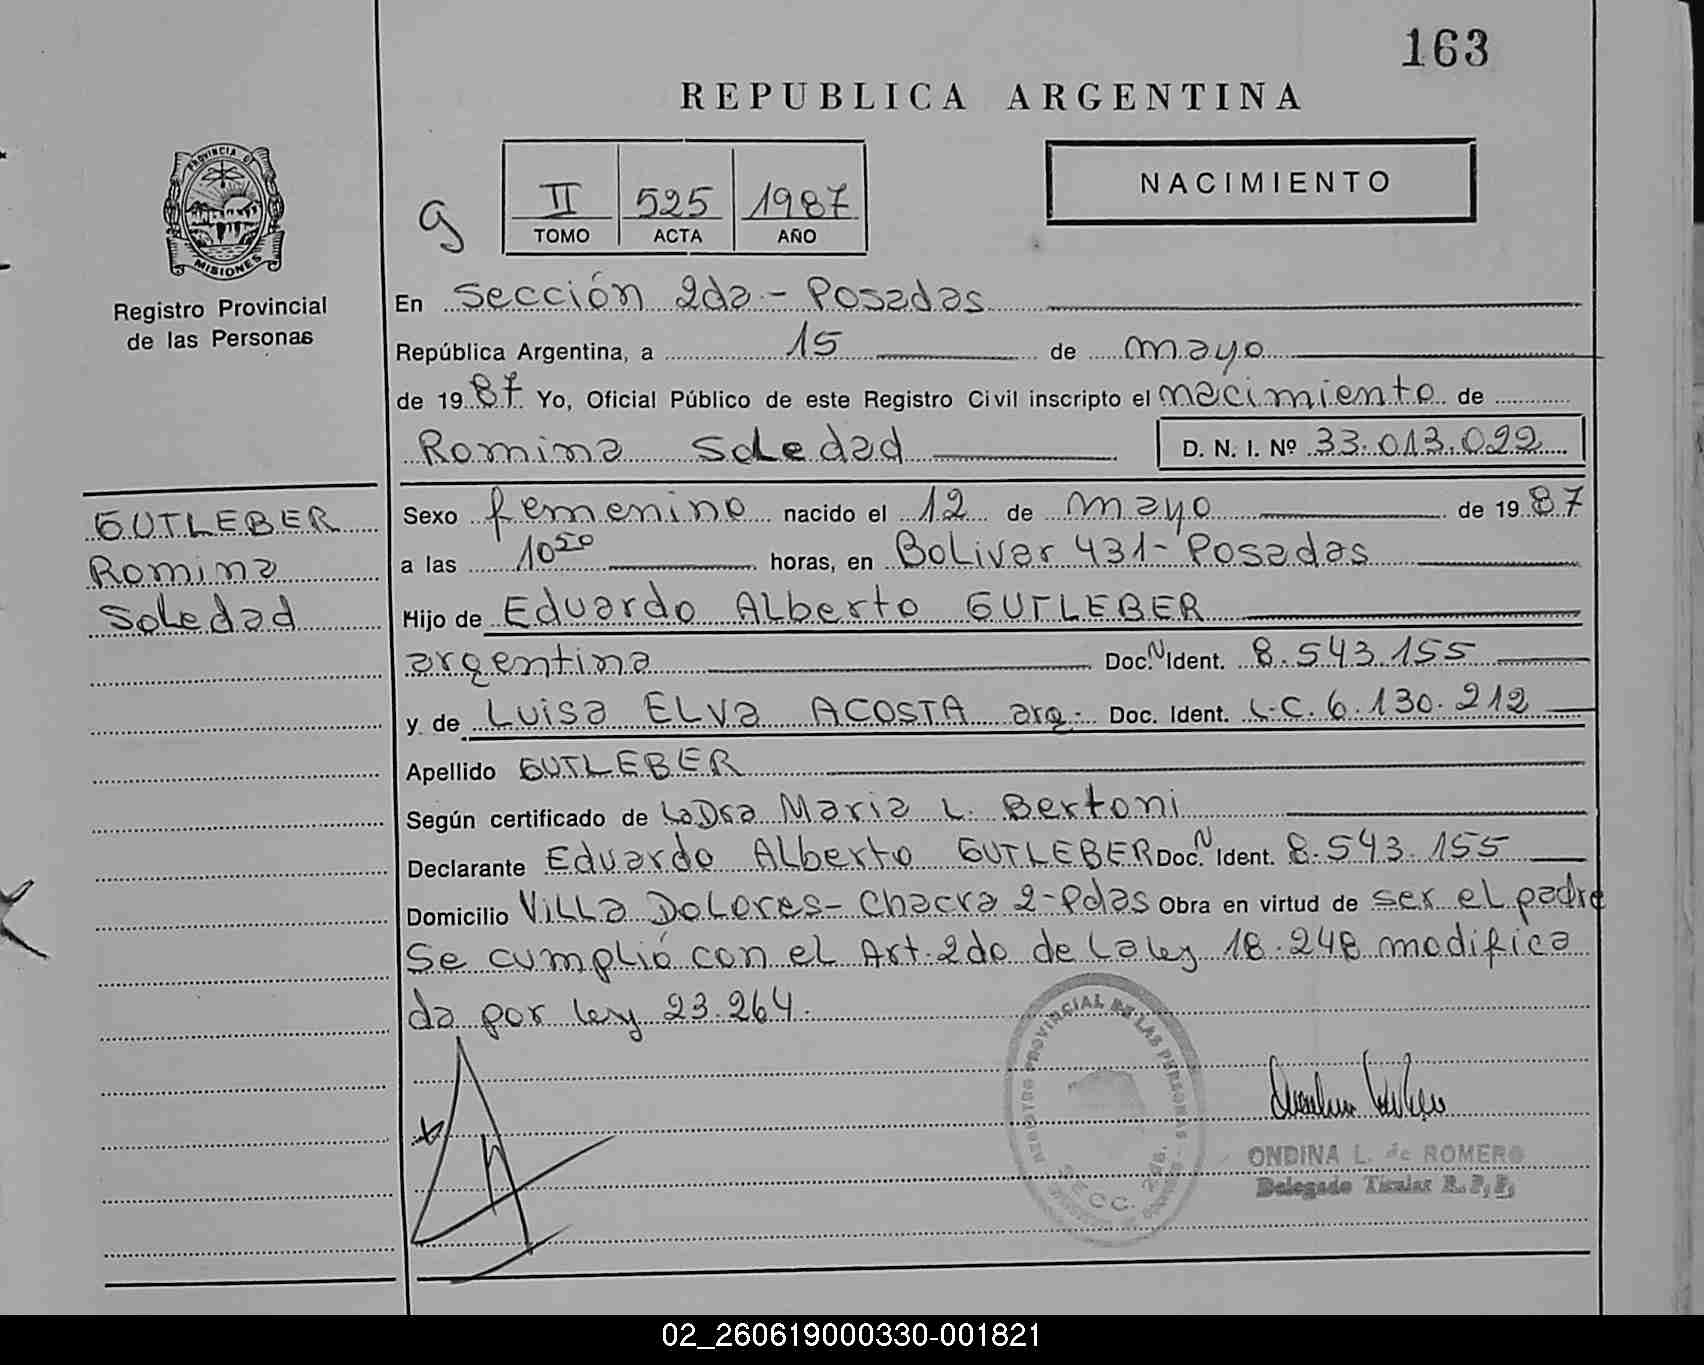 163
REPUBLICA ARGENTINA
PROVINCIA DE
MISIONES
Registro Provincial
de las Personas
g
II 525 1987
TOMO ACTA AÑO
NACIMIENTO
En Sección 2da - Posadas
República Argentina, a 15 de mayo
de 1987 Yo, Oficial Público de este Registro Civil inscripto el nacimiento de
Romina Soledad D. N. I. Nº 33.013.022
GUTLEBER
Romina
Soledad
Sexo femenino nacido el 12 de mayo de 1987
a las 10⁵⁰ horas, en Bolivar 431 - Posadas
Hijo de Eduardo Alberto GUTLEBER
argentina Doc. N Ident. 8.543.155
y de Luisa ELVa ACOSTA arg. Doc. Ident. L.C. 6.130.212
Apellido GUTLEBER
Según certificado de La Dra Maria L. Bertoni
Declarante Eduardo Alberto GUTLEBER Doc. N Ident. 8.543.155
Domicilio Villa Dolores - Chacra 2 - Pdas Obra en virtud de ser el padre
Se cumplió con el Art. 2do de la ley 18.248 modifica
da por ley 23.264.
REGISTRO PROVINCIAL DE LAS PERSONAS
SECC. 2da.
ONDINA L. de ROMERO
Delegado Titular R.P.P.
02_260619000330-001821